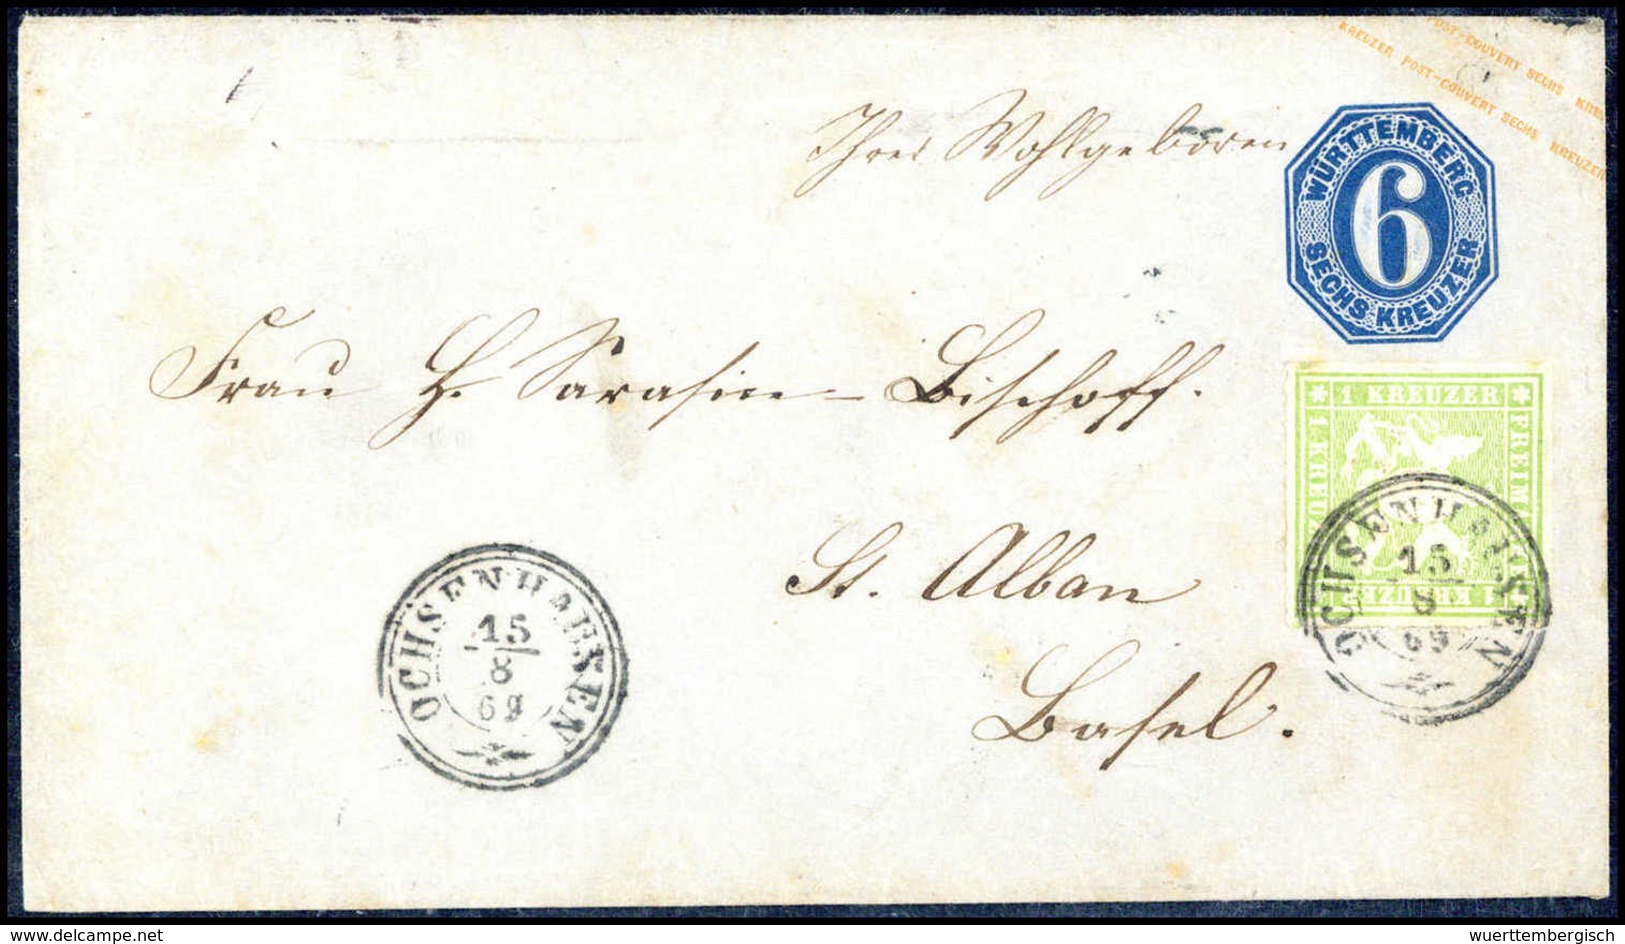 POST-COUVERT SECHS KREU
KREUZER POST-COUVERT SECHS KREUZER
Ihrer Wohlgeboren
WÜRTTEMBERG
6
SECHS KREUZER
Frau H. Sarasin-Bischoff.
St. Alban
Basel.
1 KREUZER
1 KREUZ
FREIM
1 KREUZER
OCHSENHAUSEN
15
8
69
OCHSENHAUSEN
15
8
69
www.delcampe.net
wuerttembergisch